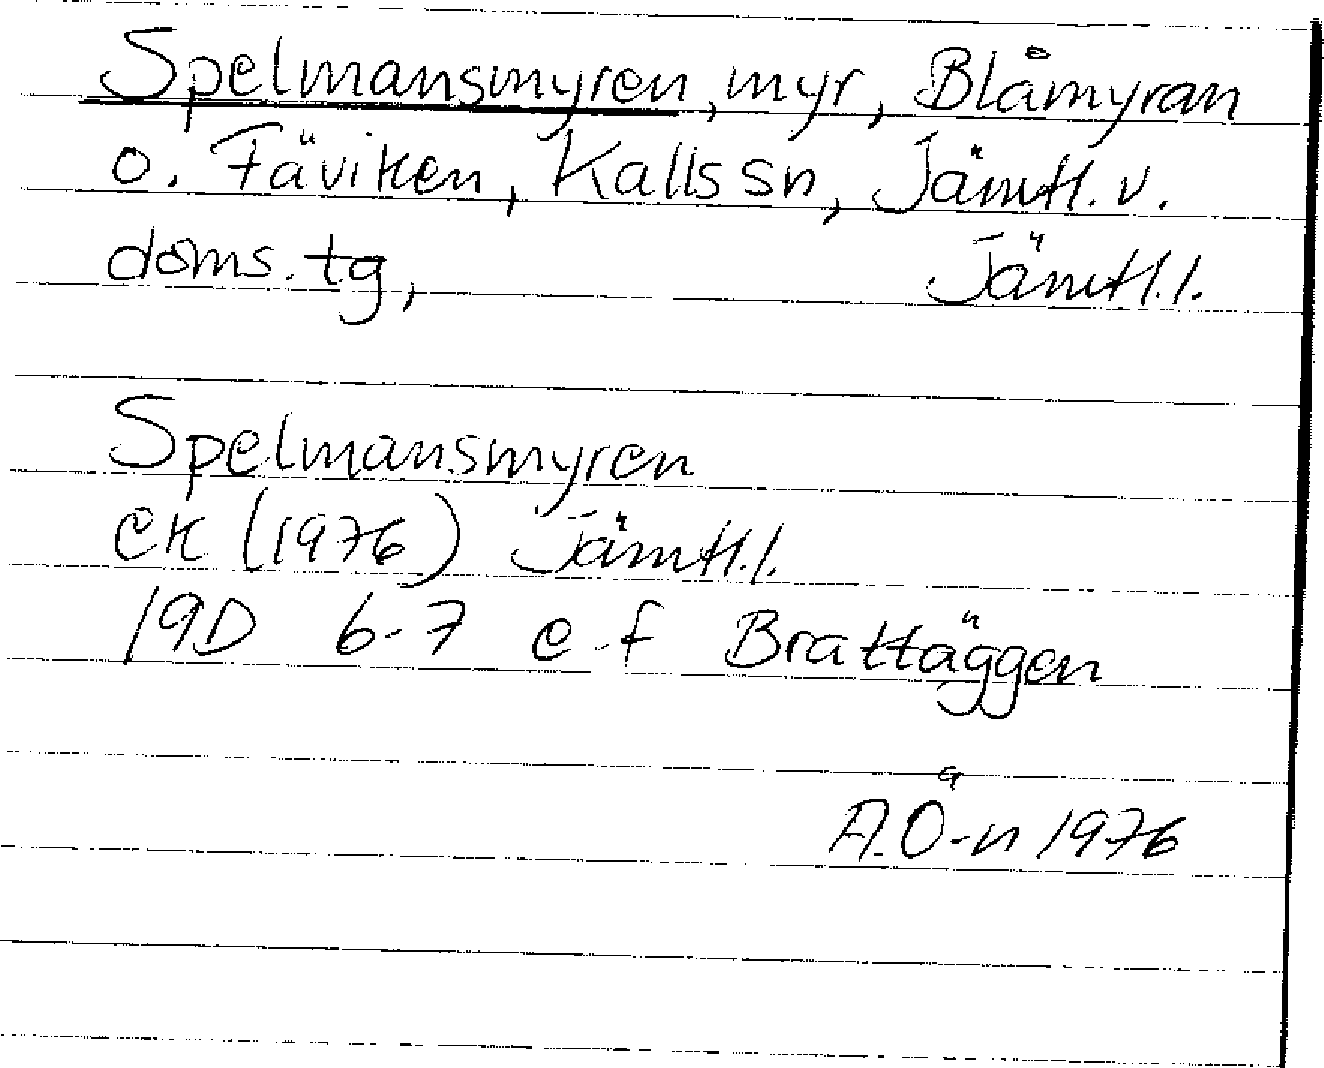 Spelmansmyren, myr, Blåmyran
o. Fäviken, Kalls sn, Jämtl. v.
doms. tg, Jämtl. l.
Spelmansmyren
ek (1976) Jämtl. l.
19D 6-7 e-f Brattäggen
A.Ö-n 1976